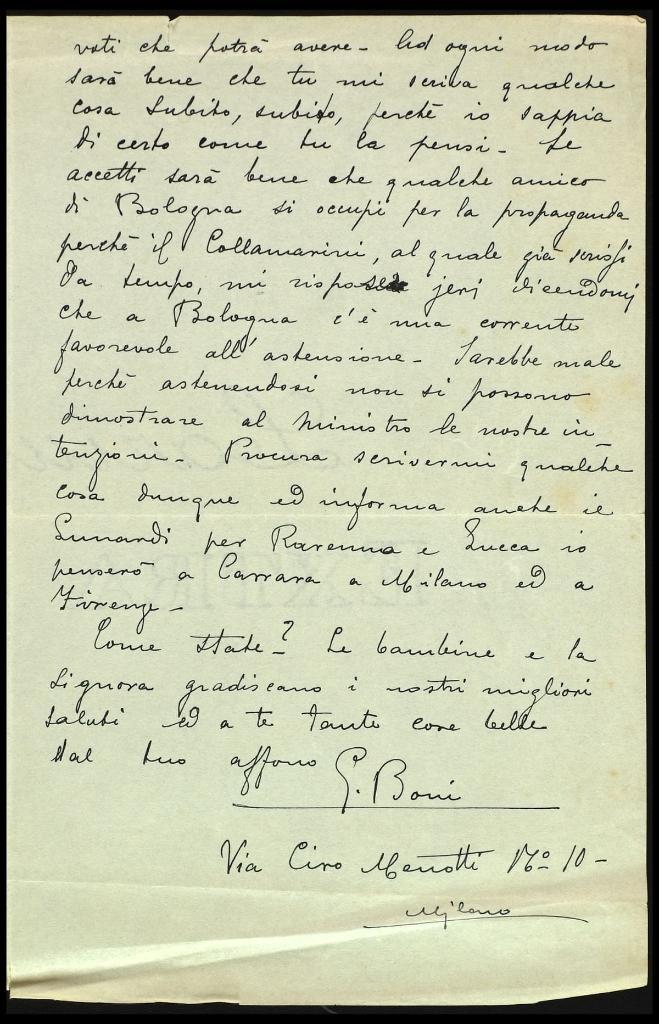 voti che potrà avere - Ad ogni modo
sarà bene che tu mi scriva qualche
cosa subito, subito, perchè io sappia
di certo come tu la pensi - Se
accetti sarà bene che qualche amico
di Bologna si occupi per la propaganda
perchè il Collamarini, al quale già scrissi
da tempo, mi rispose jeri dicendomi
che a Bologna c'è una corrente
favorevole all'astensione - Sarebbe male
perchè astenendosi non si possono
dimostrare al Ministro le nostre in_
tenzioni - Procura scrivermi qualche
cosa dunque ed informa anche il
Lunardi per Ravenna e Lucca io
penserò a Carrara a Milano ed a
Firenze -
Come state? - Le bambine e la
Signora gradiscano i nostri migliori
saluti ed a te tante cose belle
dal tuo affono
G. Boni
Via Ciro Menotti No 10 -
Milano